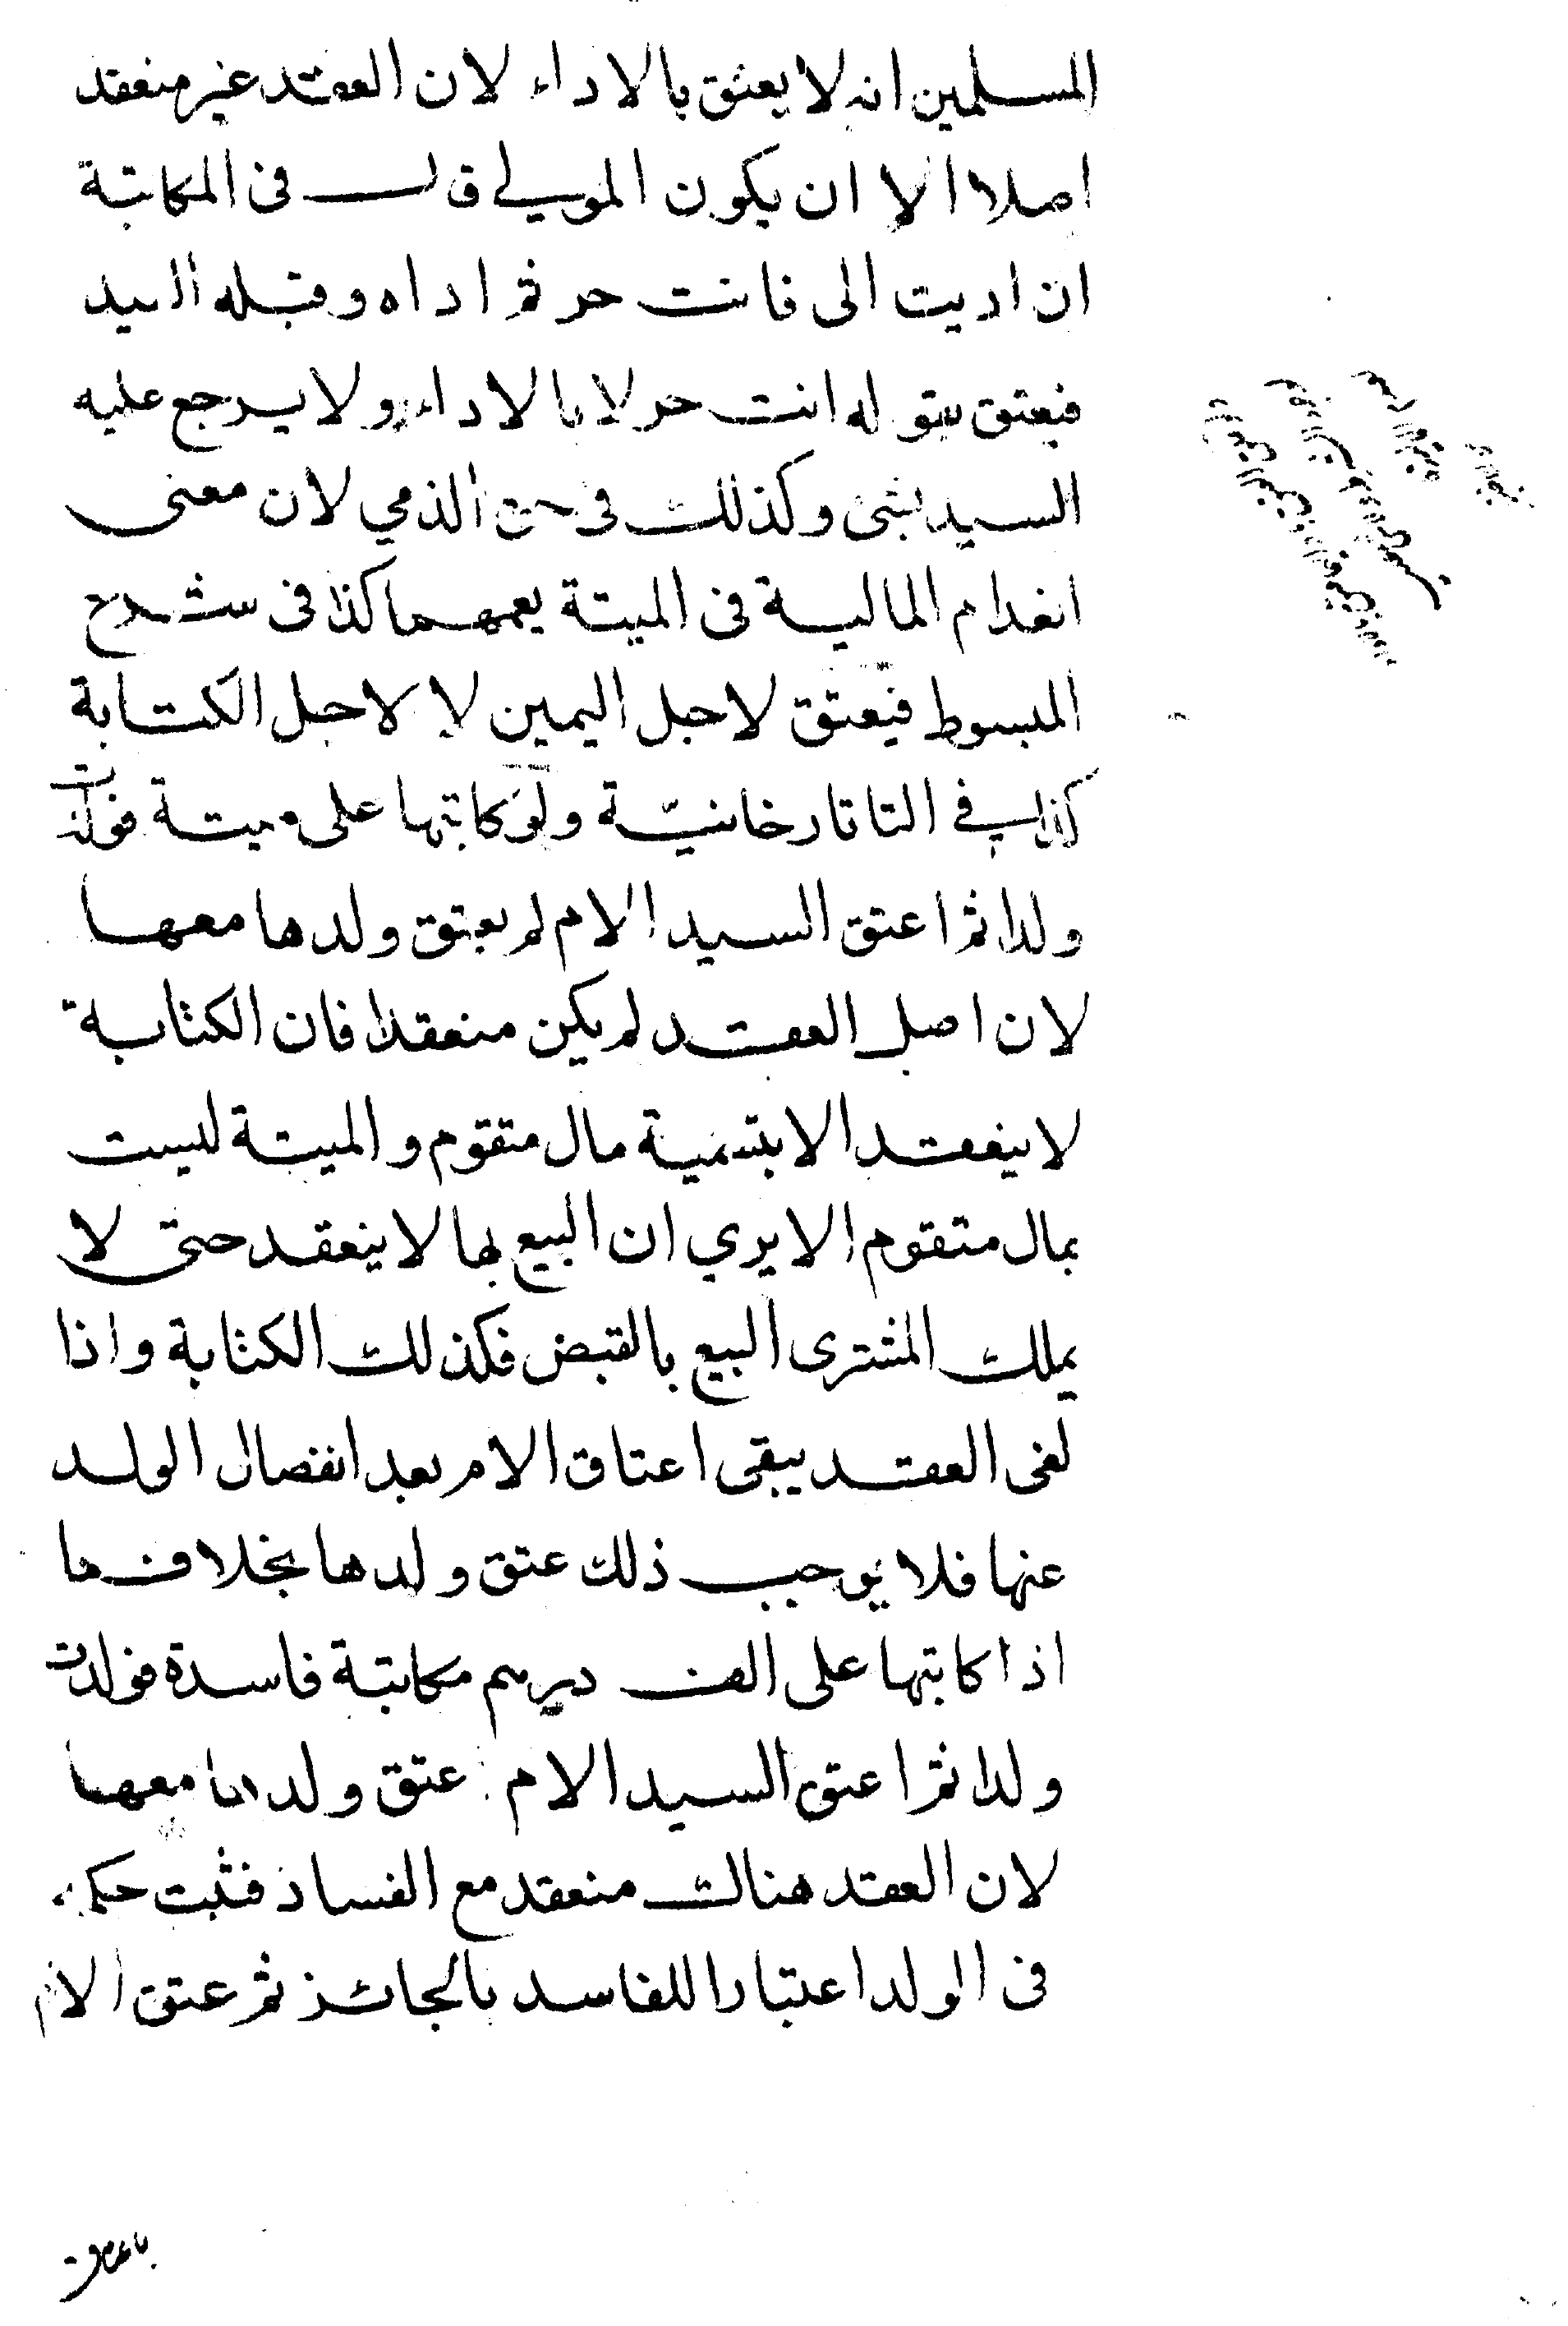 المسلمين انه لا يعتق بالاداء لان العقد غير منعقد
اصلا الا ان يكون المولي قال في المكاتبة
ان اديت الى فانت حر ثم اداه وقبله السيد
فيعتق بقوله انت حر لا بالاداء ولا يرجع عليه
السيد بشئ وكذلك في حق الذمي لان معنى
انعدام المالية فى الميتة يعمهما كذا فى شرح
المبسوط فيعتق لاجل اليمين لا لاجل الكتابة
كذا في التاتارخانيّة ولو كاتبها على ميتة فولدت
ولدا ثم اعتق السيد الام لم يعتق ولدها معها
لان اصل العقد لم يكن منعقدا فان الكتابة
لا ينعقد الا بتسمية مال متقوم والميتة ليست
بمال متقوم الا يري ان البيع بها لا ينعقد حتى لا
يملك المشترى البيع بالقبض فكذلك الكتابة واذا
لغى العقد يبقى اعتاق الام بعد انفصال الولد
عنها فلا يوجب ذلك عتق ولدها بخلاف ما
اذا كاتبها على الف درهم مكاتبة فاسدة فولدت
ولدا ثم اعتق السيد الام عتق ولدها معها
لان العقد هناك منعقد مع الفساد فثبت حكمه
فى الولد اعتبارا للفاسد بالجائز ثم عتق الام